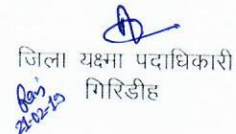 जिला यक्ष्मा पदाधिकारी
गिरिडीह
21-02-19